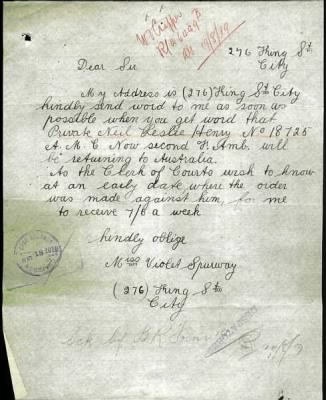 276 King St
City
Dear Sir
My Address is (276) King St City
kindly send word to me as soon as
possible when you get word that
Private Neil Leslie Henry No 18725
A. M. C Now second F. Amb. will
be returning to Australia.
As the Clerk of Courts wish to know
at an early date where the order
was made against him, for me
to receive 7/6 a week
kindly oblige
Miss Violet Spurway
(276) King St
City